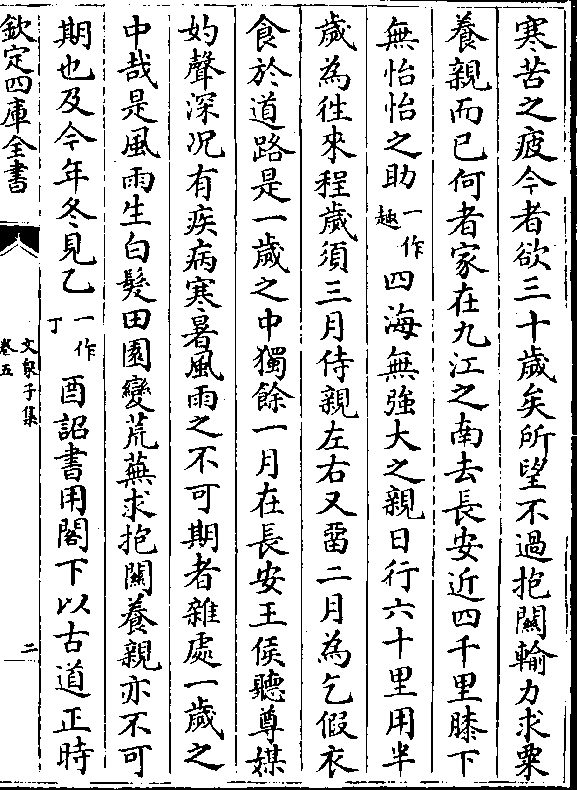 寒苦之疲今者欲三十歲矣所望不過抱關輸力求粟
養親而已何者家在九江之南去長安近四千里膝下
無怡怡之助一作趣四海無強大之親日行六十里用半
歲為徃來程歲須三月侍親左右又留二月為乞假衣
食於道路是一歲之中獨餘一月在長安王侯聽尊媒
妁聲深况有疾病寒暑風雨之不可期者雜處一歲之
中哉是風雨生白髮田園變荒蕪求抱關養親亦不可
期也及今年冬見乙一作丁酉詔書用閣下以古道正時
欽定四庫全書
文泉子集
卷五
二